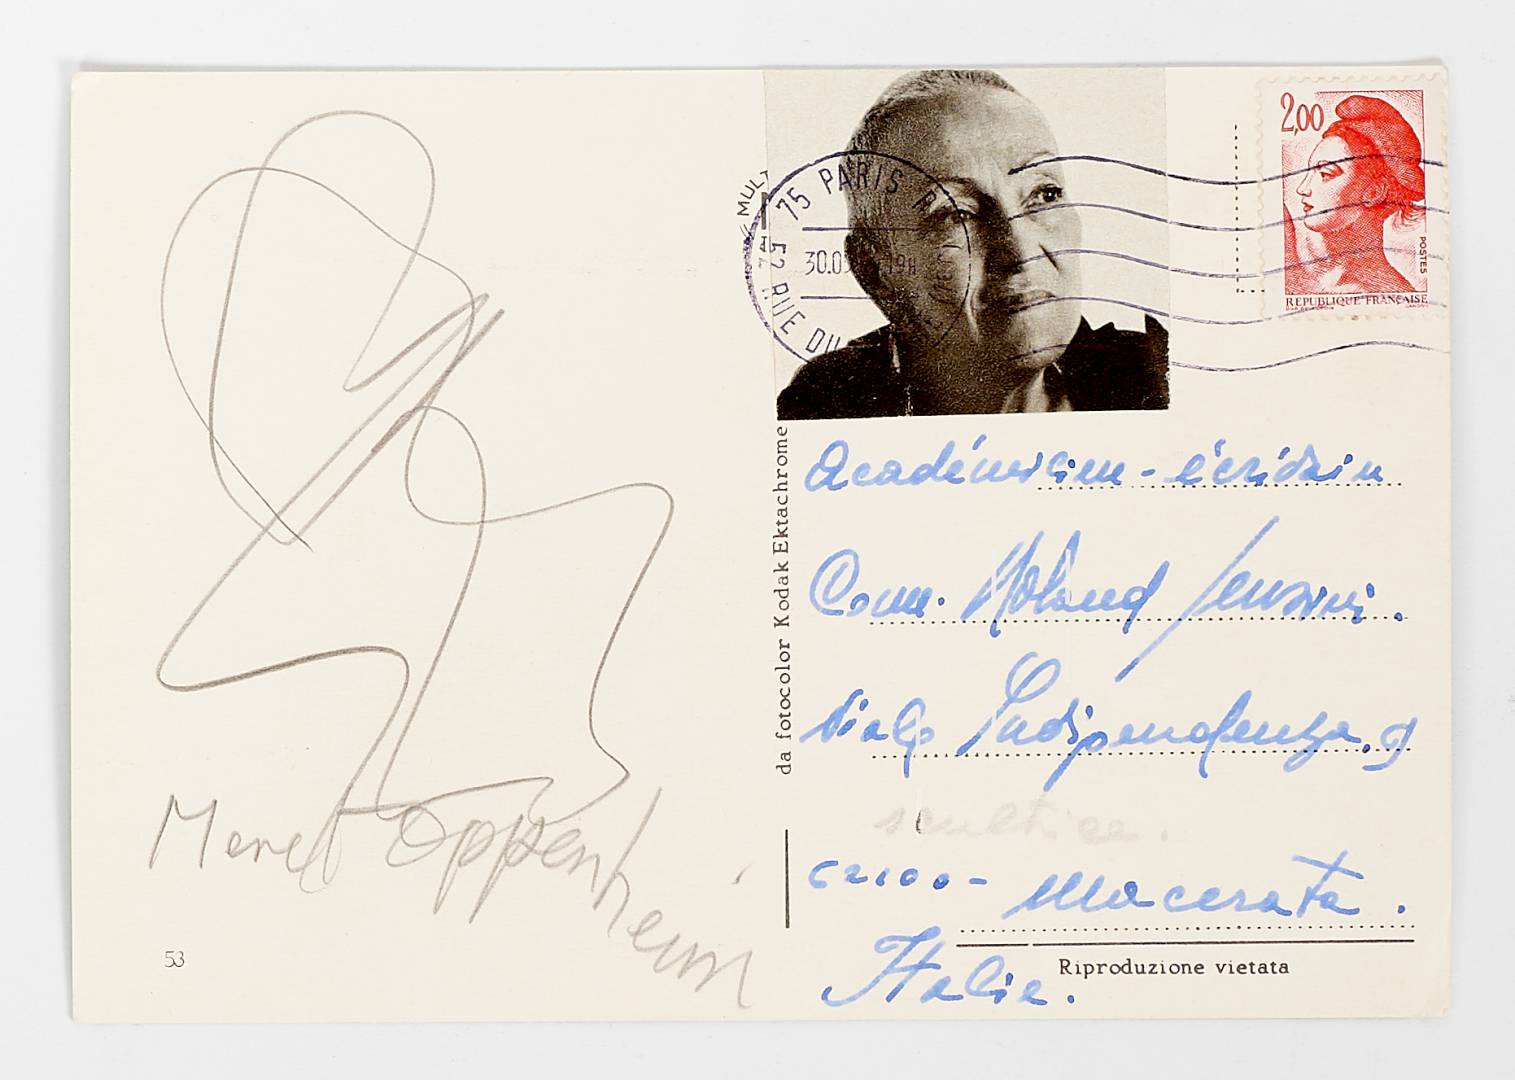 Meret Oppenheim
53
MULT
75 PARIS
30.0 19H
52 RUE DU
2,00
POSTES
REPUBLIQUE FRANÇAISE
da fotocolor Kodak Ektachrome
Académicien - écrivain
Comm. Roland
Viale Indipendenza, 9
scultrice.
62100 - Macerata.
Italie.
Riproduzione vietata